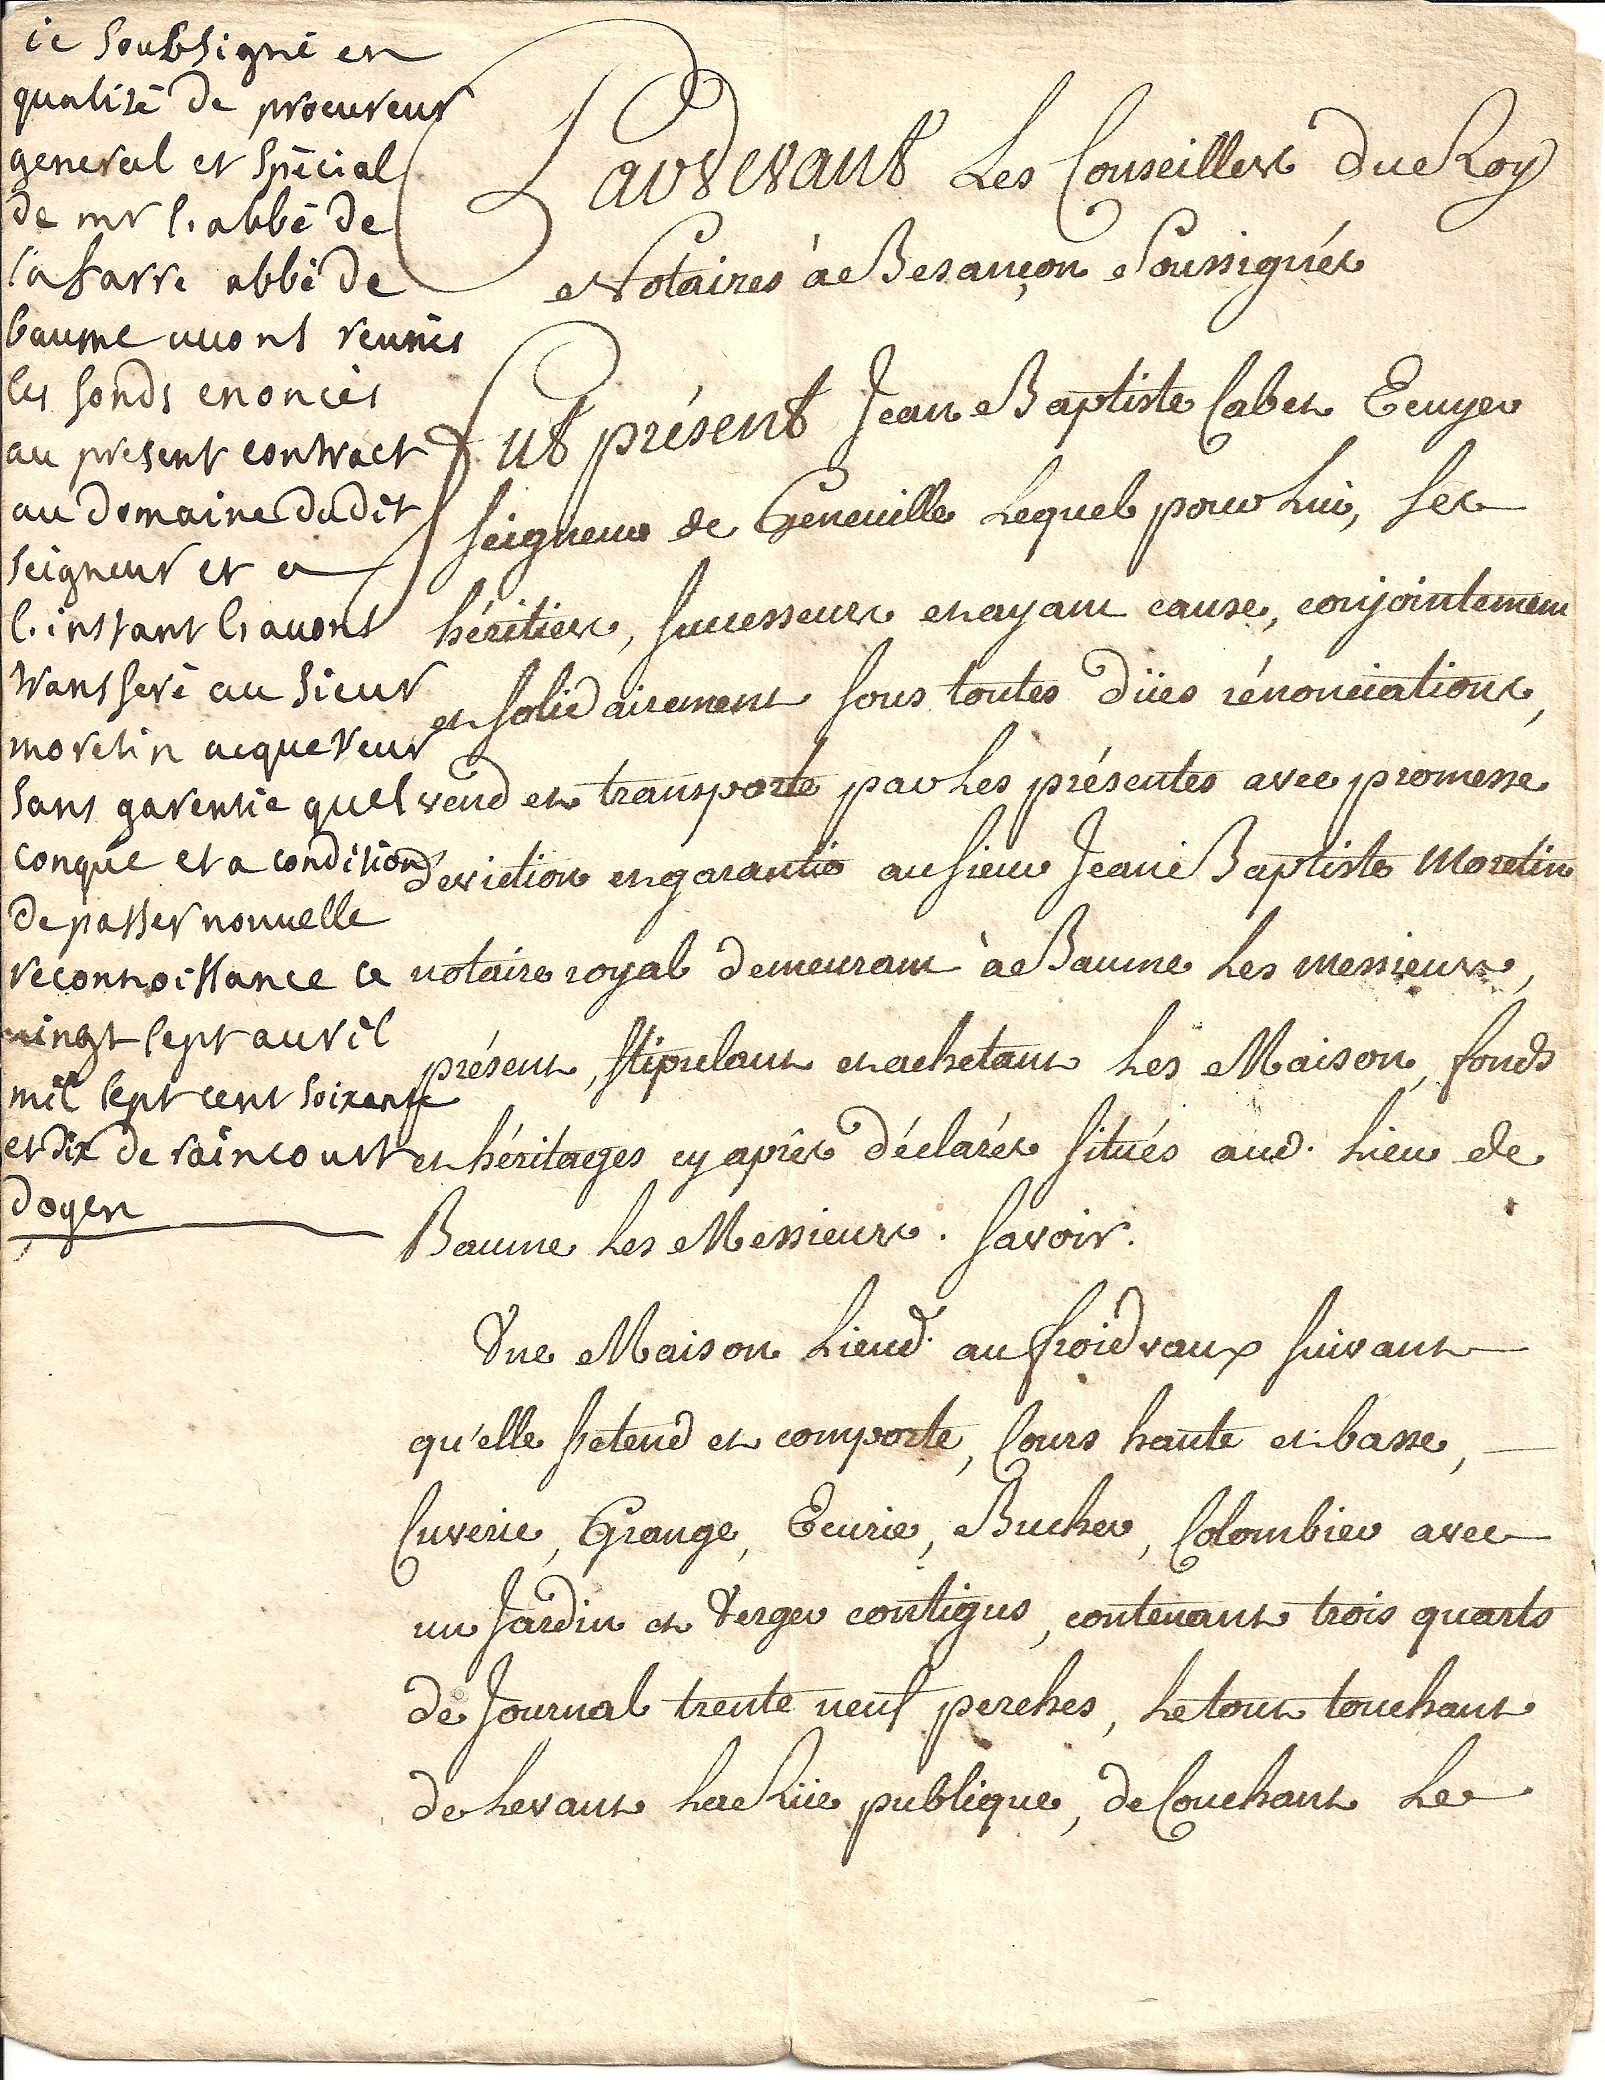 ie soubsigné en
qualité de procureur
general et spécial
de mr l.abbé de
la farre abbé de
baume avons reunis
les fonds enoncés
au present contract
au domaine dudit
seigneur et a
l.instant l.avons
transferé au sieur
morelin acquereur
sans garentie quel
conque et a condition
de passer nouvelle
reconnoissance ce
vingt sept avril
mil sept cent soixante
et dix de raincourt
doyen
Pardevant Les Conseillers du Roy
Notaires à Besançon Soussignés
Fut présent Jean Baptiste Cabet Ecuyer
seigneur de Geneuille Lequel pour Lui, ses
héritiers, successeurs et ayant cause, conjointement
et solidairement sous toutes düés rénonciations,
vend et transporte par Les présentes avec promesse
d'eviction et garantie au sieur Jean Baptiste Morelin
notaire royal demeurant à Baume Les messieurs,
présent, stipulant et achetant Les Maison, fonds
et héritages cy après déclarés situés aud. Lieu de
Baume Les Messieurs. Savoir.
Une Maison Lieud. au froidvaux suivant
qu'elle s'etend et comporte, Cours haute et basse,
Cuverie, Grange, Ecurie, Bucher, Colombier avec
un Jardin et Verger contigus, contenant trois quarts
de Journal trente neuf perches, Le tout touchant
de Levant La Rüe publique, de Couchant Le